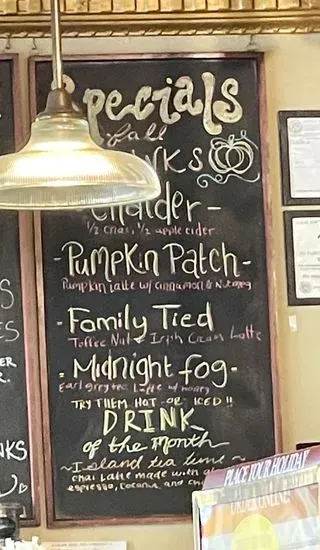 Specials
fall
- Chaider -
1/2 chai, 1/2 apple cider
- Pumpkin Patch -
Pumpkin latte w/ cinnamon & Nutmeg
- Family Tied
Toffee Nut + Irish Cream Latte
- Midnight fog -
Earl grey tea Latte w/ honey
TRY THEM HOT OR ICED !!
DRINK
of the month
~ Island tea time ~
chai Latte made with
espresso, coconut, and
PLACE YOUR HOLIDAY
ORDER ONLINE!